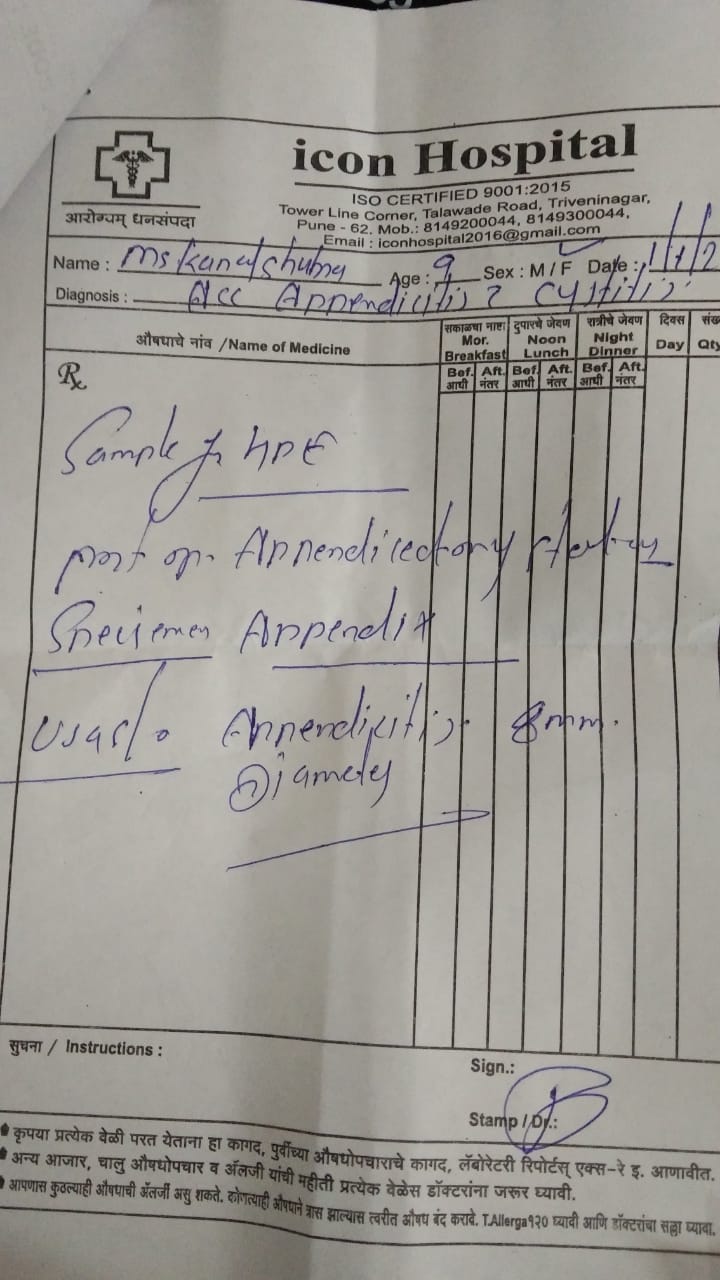 icon Hospital
ISO CERTIFIED 9001:2015
Tower Line Corner, Talawade Road, Triveninagar,
Pune - 62. Mob.: 8149200044, 8149300044,
Email : iconhospital2016@gmail.com
आरोग्यम् धनसंपदा
Name : Ms Age : 9 Sex : M / F Date : 1/1/2
Diagnosis : Acc Appendicitis ? Cystitis
औषधाचे नांव /Name of Medicine
सकाळचा नाष्टा दुपारचे जेवण रात्रीचे जेवण दिवस संख
Mor. Noon Night Day Qty
Breakfast Lunch Dinner
Bef. Aft. Bef. Aft. Bef. Aft.
आधी नंतर आधी नंतर आधी नंतर
Rx
Sample for HPE
post op. Appendicectomy status
Specimen Appendix
Appendicitis 8mm.
Diameter
सुचना / Instructions :
Sign.:
Stamp / Dr.:
कृपया प्रत्येक वेळी परत येताना हा कागद, पुर्वीच्या औषधोपचाराचे कागद, लॅबोरेटरी रिपोर्टस् एक्स-रे इ. आणावीत.
अन्य आजार, चालु औषधोपचार व ॲलर्जी यांची महीती प्रत्येक वेळेस डॉक्टरांना जरूर घ्यावी.
आपणास कुठल्याही औषधाची ॲलर्जी असु शकते. कोणत्याही औषधाने त्रास झाल्यास त्वरीत औषध बंद करावे. T.Allerga१२० घ्यावी आणि डॉक्टरांचा सल्ला घ्यावा.